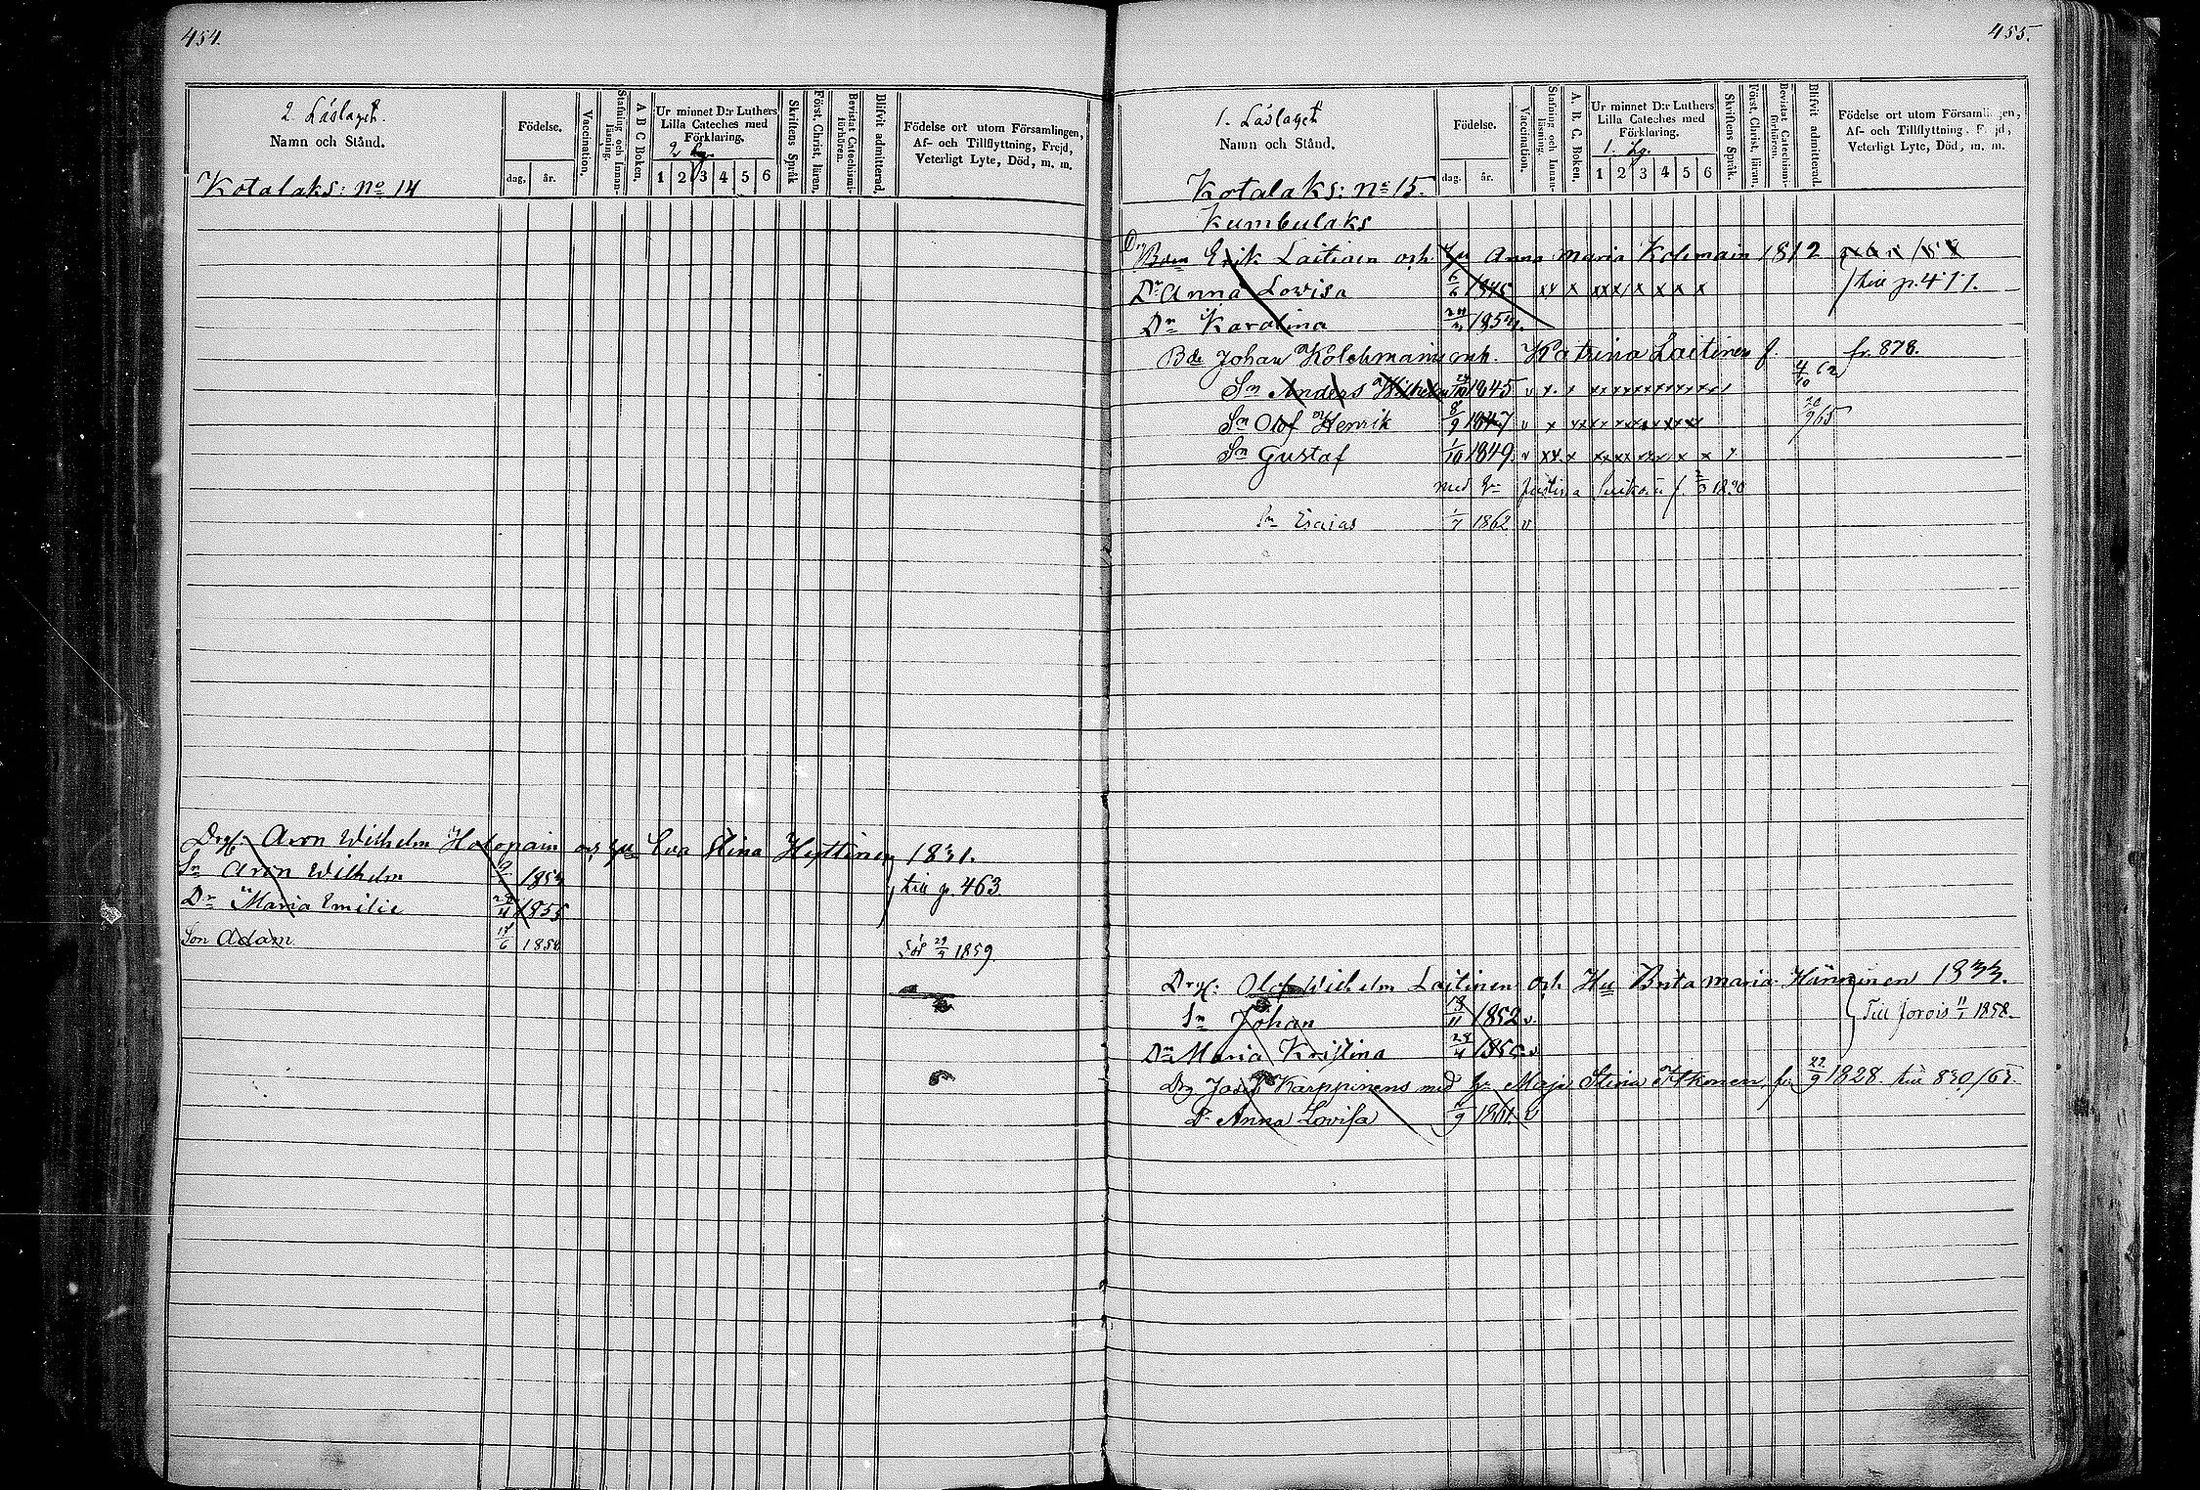 454.
2. Läslaget.
Namn och Stånd.
Födelse.
dag. år.
Vaccination.
Stafning och Innan-läsning.
A B C Boken.
Ur minnet D:r Luthers
Lilla Cateches med
Förklaring.
2 Lg.
1 2 3 4 5 6
Skriftens Språk
Först. Christ. läran.
Bevistat Catechismi-förhören.
Blifvit admitterad.
Födelse ort utom Församlingen,
Af- och Tillflyttning, Frejd,
Veterligt Lyte, Död, m. m.
Kotalaks: No 14
Aron Wilhelm Holopain och Hu Eva Stina Hyttinen 1831.
Sn Aron Wilhelm
till p. 463
Dr Maria Emilie 1855
Son Adam
1859.
455.
1. Läslaget
Namn och Stånd.
Födelse.
dag. år.
Vaccination.
Stafning och Innan-läsning.
A. B. C. Boken.
Ur minnet D:r Luthers
Lilla Cateches med
Förklaring.
1. Lg.
1 2 3 4 5 6
Skriftens Språk.
Först. Christ. läran.
Bevistat Catechismi-förhören.
Blifvit admitterad.
Födelse ort utom Församlingen,
Af- och Tillflyttning, Frejd,
Veterligt Lyte, Död, m. m.
Kotalaks: No 15.
Kumbulaks
Erik Laitinen och Hu Anna Maria Kolemain 1812
Dr Anna Lovisa 6/6 1845 till p. 477.
Dr Karolina
Bde Johan Kolehmain och Katrina Laitinen f. fr. 878.
Sn Anders Wilhelm 1845 v 4/10 62
Sn Olof Henrik 8/9 1847 v 20/9 65
Sn Gustaf 1/10 1849 v
med Hu Justina 1830
Sn Esaias 1/7 1862 v
Olof Wilhelm Laitinen och Hu Brita Maria Hänninen 1833.
Sn Johan 18/11 1852 v. Till Jorois 1858.
Dr Maria Kristina
Josef Karppinens med Hu Maja Stina 22/9 1828. till 830/65.
Dr Anna Lovisa